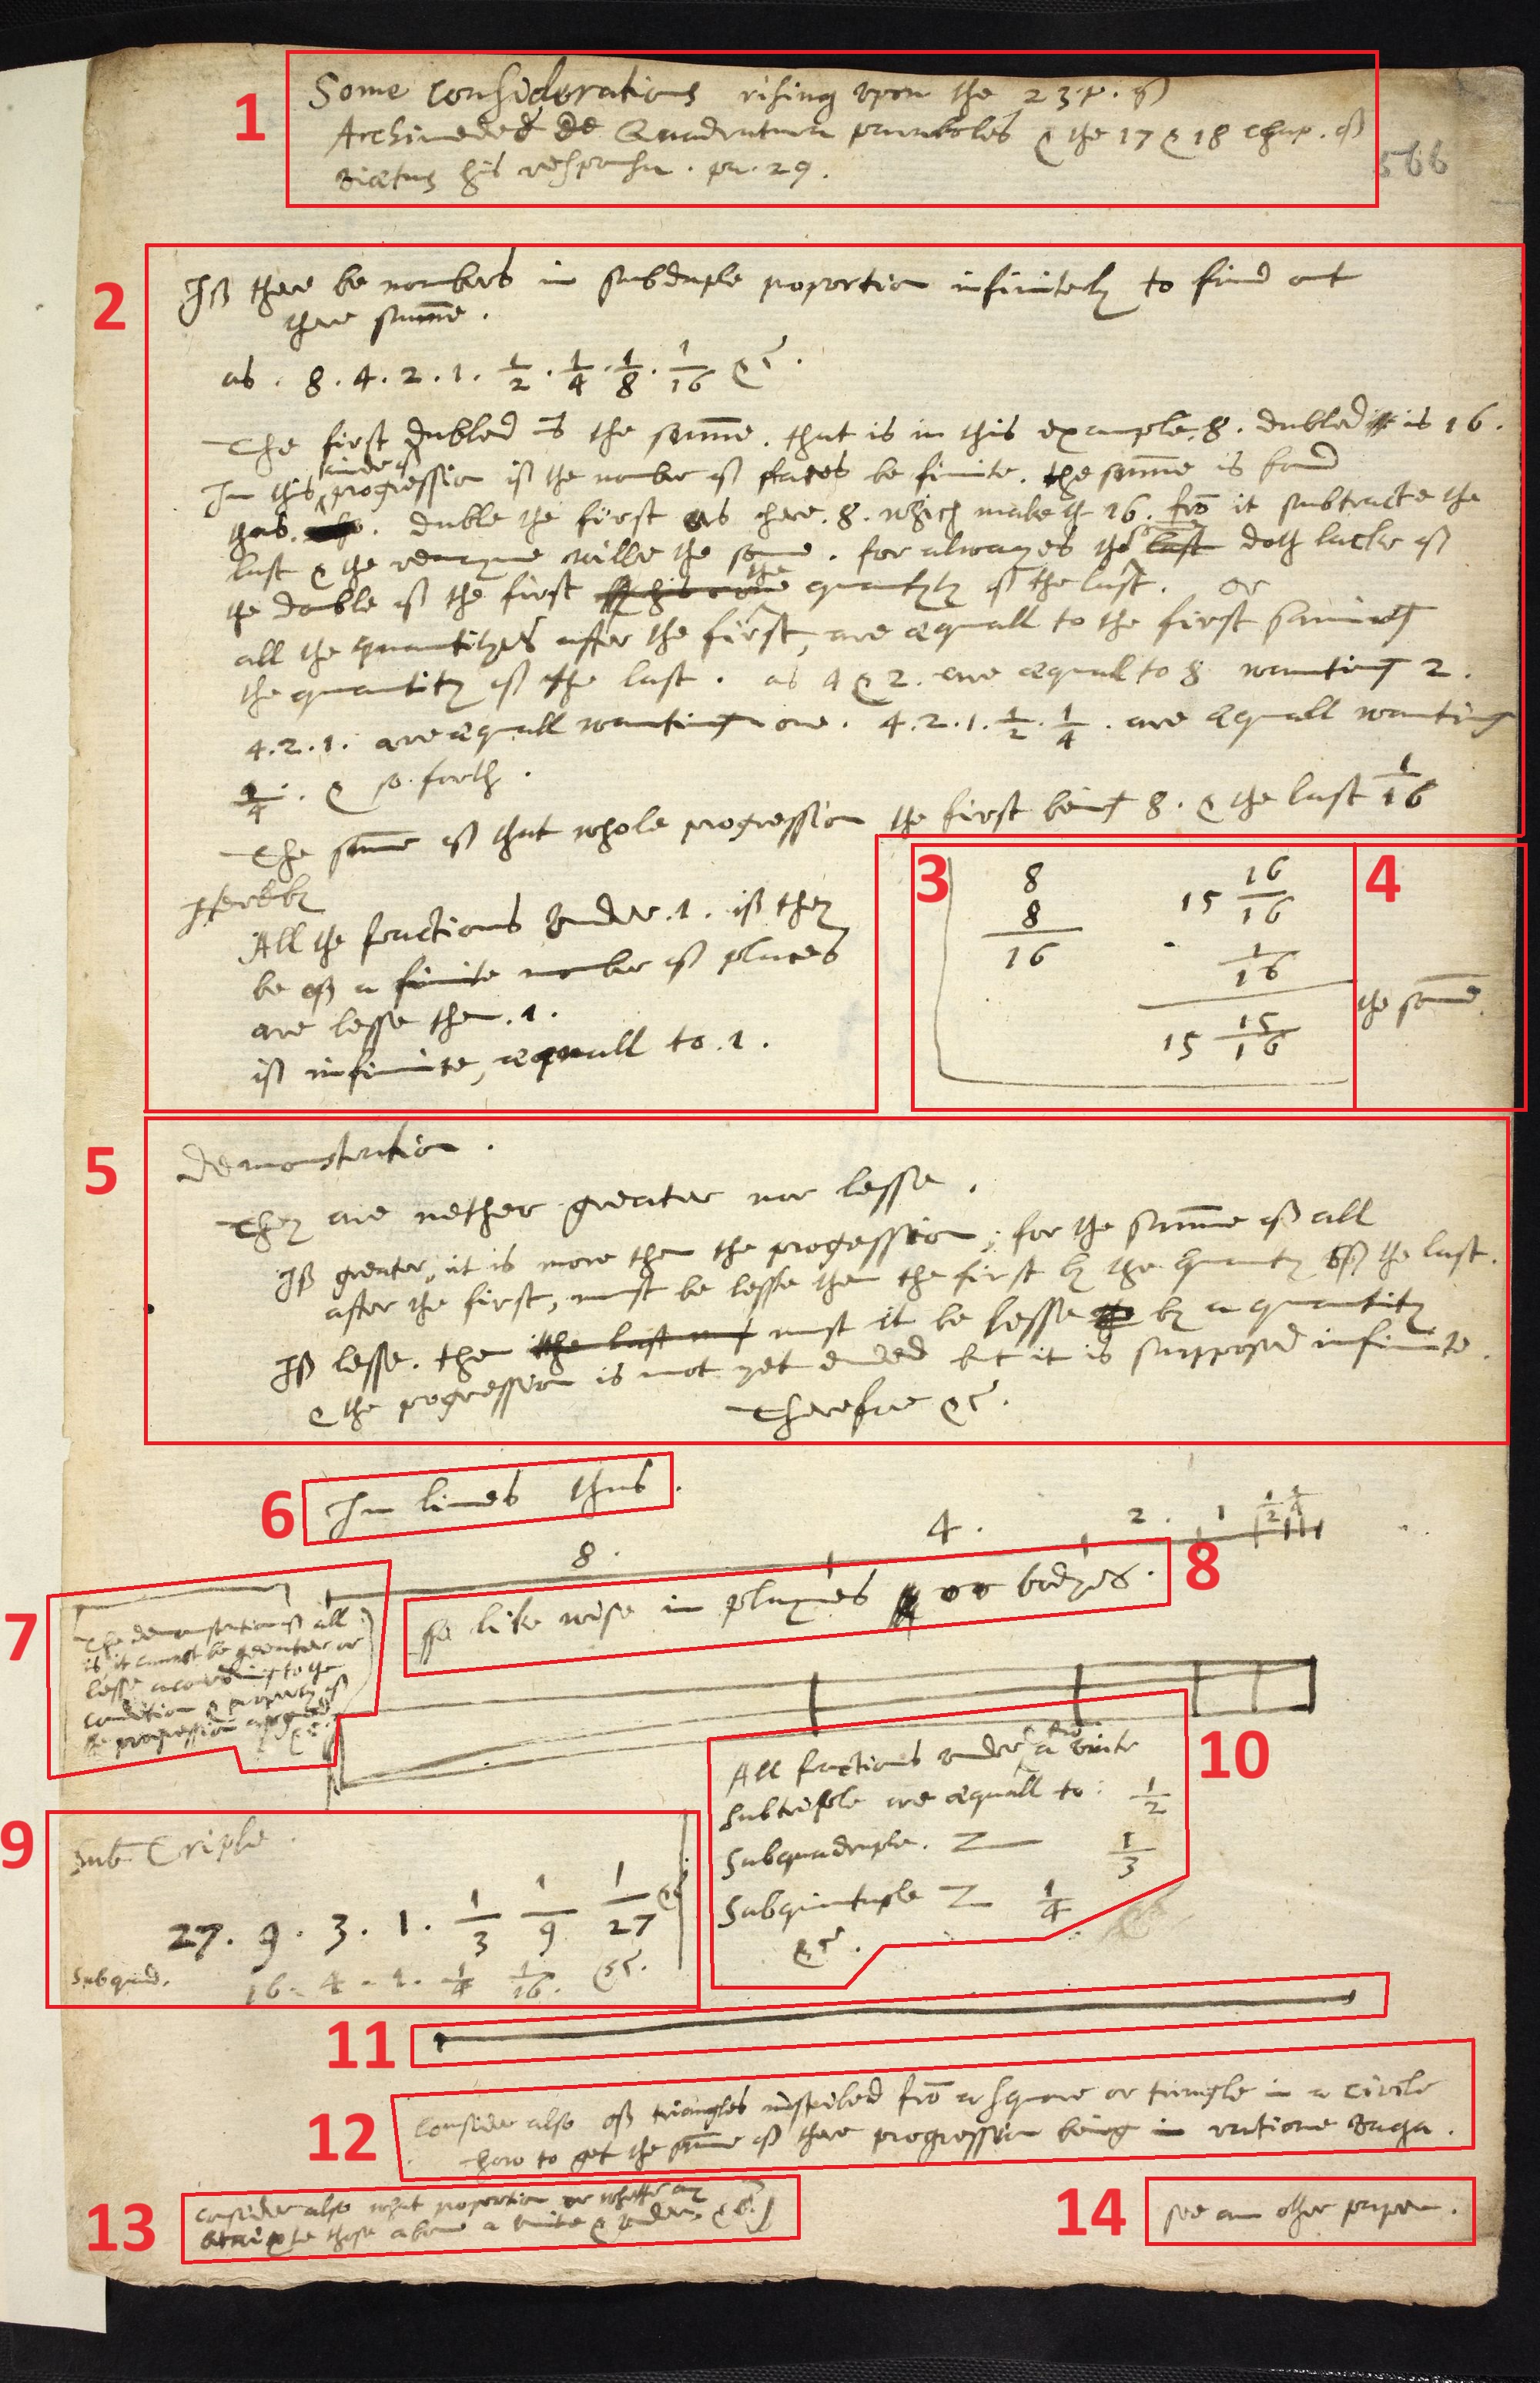 1
Some considerations rising upon the 23.p. of
Archimedes de Quadratura paraboles & the 17 & 18 chap. of
Viætus his responsu. pa. 29.
566
2
If there be nombers in subduple proportion infinitely to find out
there summe.
as . 8 . 4 . 2 . 1 . 1/2 . 1/4 . 1/8 . 1/16 &c.
The first dubled is the summe. that is in this example. 8. dubled is 16.
In this kinde of progression if the nomber of places be finite. the summe is found
thus. duble the first as here. 8. which maketh 16. frō it subtracte the
last & the remayne wilbe the some. for alwayes the last doth lacke of
the double of the first the quantyty of the last. or
all the quantityes after the first, are æquall to the first saming
the quantity of the last. as 4 & 2. are æquall to 8 wanting 2.
4.2.1. are æquall wanting one. 4.2.1. 1/2 . 1/4 . are æquall wanting
1/4 . & so forth .
The summe of that whole progression the first being 8. & the last 1/16
Hereby
All the fractions vnder .1. if they
be of a finite nomber of places
are lesse then .1.
if infinite, æquall to .1.
3
8
8
16
15 16/16
1/16
15 15/16
4
the somme.
5
Demonstration .
They are nether greater nor lesse .
If greater, it is more then the progession; for the summe of all
after the first, must be lesse then the first by the quantity of the last.
If lesse. then the last must must it be lesse by a quantity
& the progression is not yet ended but it is supposed infinite.
Therefore &c.
6
In lines thus .
8 . 4 . 2 . 1 1/2 1/4
7
The demonstration of all
is, it cannot be greater or
lesse according to the
condition & property of
the progression agreed
&c.
8
So likewise in playnes or bodyes.
9
Sub Triple .
27 . 9 . 3 . 1 . 1/3 1/9 1/27 &c
Subquad. 16 . 4 . 1 . 1/4 1/16 . &c.
10
All fractions vnder a vnite
Subtriple are æquall to : 1/2
Subquadruple. 1/3
Subquintuple 1/4
&c.
11
12
Consider also of triangles inscribed frō a square or triangle in a circle
how to get the summe of there progression being in ratione vaga .
13
Consider also what proportion or whether any
those above a vnite & vnder. &c.
14
see an other paper .